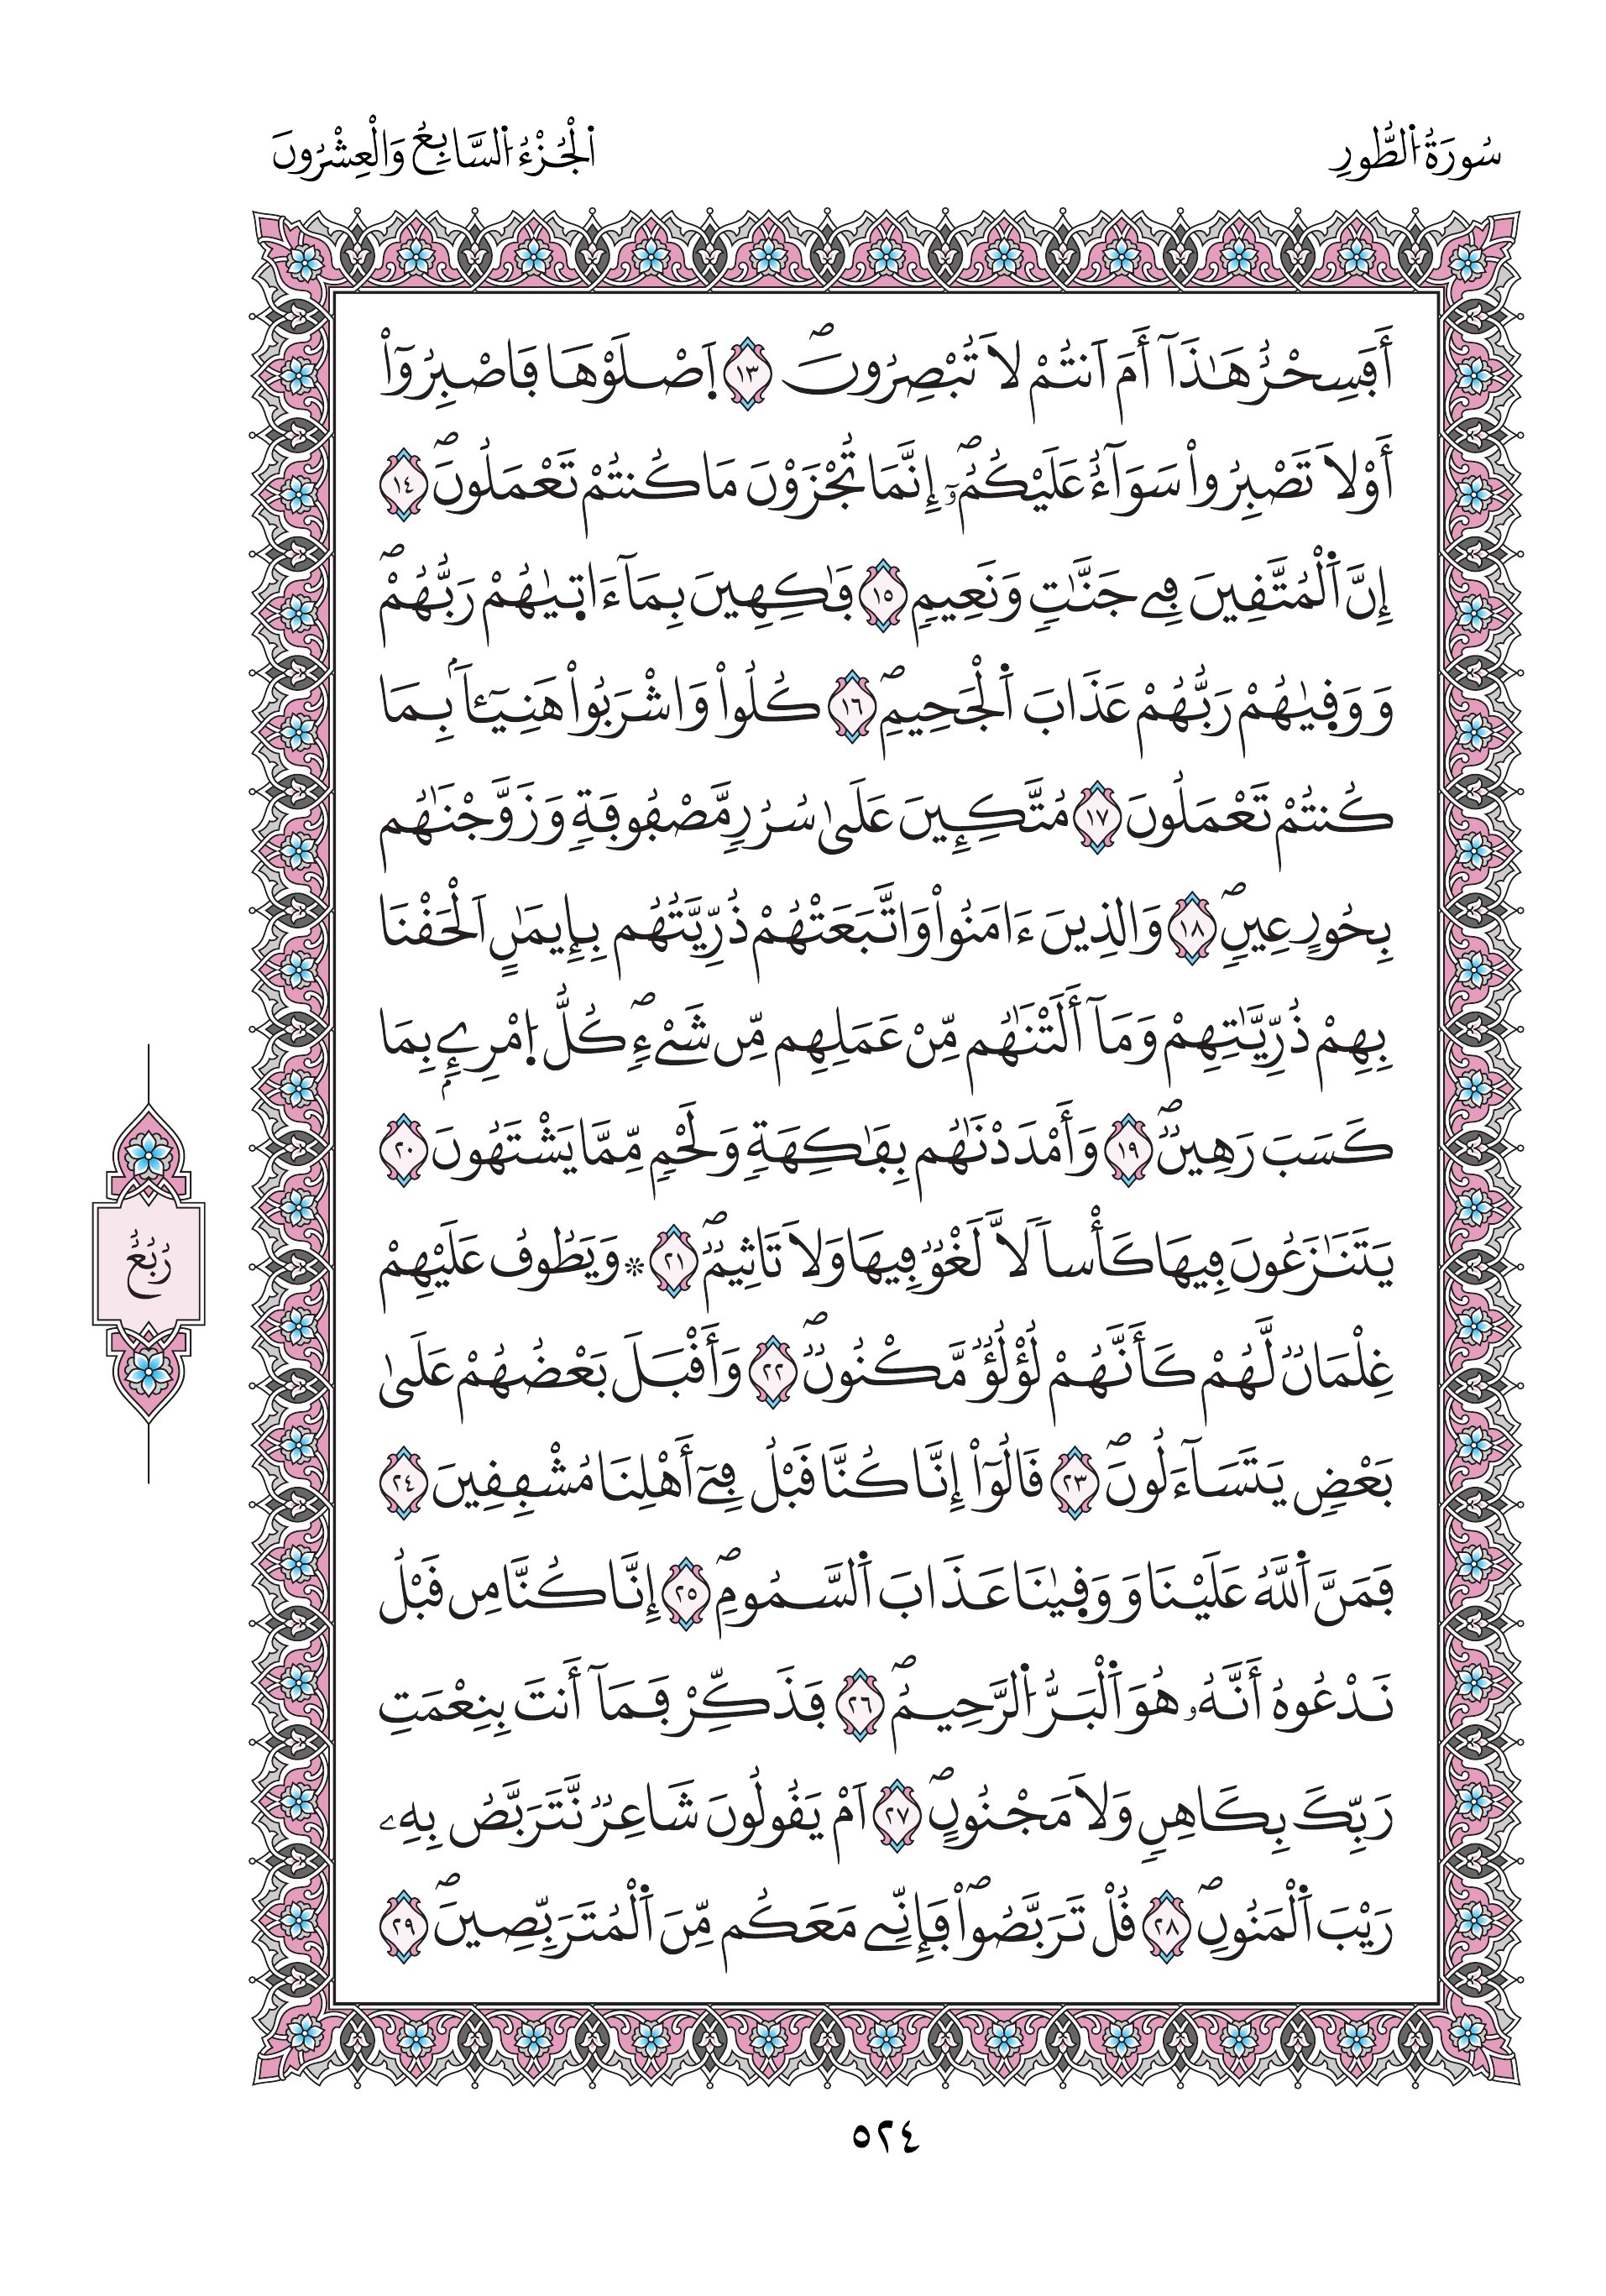 سُورَةُ الطُّورِ
الْجُزْءُ السَّابِعُ وَالْعِشْرُونَ
أَفَسِحْرٌ هَٰذَآ أَمَ اَنتُمْ لَا تُبْصِرُونَۖ ١٣ اَ۪صْلَوْهَا فَاصْبِرُوٓاْ
أَوْ لَا تَصْبِرُواْ سَوَآءٌ عَلَيْكُمُۥٓۖ إِنَّمَا تُجْزَوْنَ مَا كُنتُمْ تَعْمَلُونَۖ ١٤
إِنَّ اَ۬لْمُتَّقِينَ فِے جَنَّٰتٖ وَنَعِيمٖ ١٥ فَٰكِهِينَ بِمَآ ءَاتٜيٰهُمْ رَبُّهُمْۖ
وَوَقٜيٰهُمْ رَبُّهُمْ عَذَابَ اَ۬لْجَحِيمِۖ ١٦ كُلُواْ وَاشْرَبُواْ هَنِيٓـٔاَۢ بِمَا
كُنتُمْ تَعْمَلُونَ ١٧ مُتَّكِـِٕينَ عَلَىٰ سُرُرٖ مَّصْفُوفَةٖ وَزَوَّجْنَٰهُم
بِحُورٍ عِينٖۖ ١٨ وَالذِينَ ءَامَنُواْ وَاتَّبَعَتْهُمْ ذُرِّيَّتُهُم بِإِيمَٰنٍ اَلْحَقْنَا
بِهِمْ ذُرِّيَّٰتِهِمْ وَمَآ أَلَتْنَٰهُم مِّنْ عَمَلِهِم مِّن شَےْءٖۖ كُلُّ اُ۪مْرِےِٕۢ بِمَا
كَسَبَ رَهِينٞۖ ١٩ وَأَمْدَدْنَٰهُم بِفَٰكِهَةٖ وَلَحْمٖ مِّمَّا يَشْتَهُونَ ٢٠
يَتَنَٰزَعُونَ فِيهَا كَأْساٗ لَّا لَغْوٞ فِيهَا وَلَا تَاثِيمٞۖ ٢١ ۞ وَيَطُوفُ عَلَيْهِمْ
غِلْمَانٞ لَّهُمْ كَأَنَّهُمْ لُؤْلُؤٞ مَّكْنُونٞۖ ٢٢ وَأَقْبَلَ بَعْضُهُمْ عَلَىٰ
بَعْضٖ يَتَسَآءَلُونَۖ ٢٣ قَالُوٓاْ إِنَّا كُنَّا قَبْلُ فِےٓ أَهْلِنَا مُشْفِقِينَ ٢٤
فَمَنَّ اَ۬للَّهُ عَلَيْنَا وَوَقٜيٰنَا عَذَابَ اَ۬لسَّمُومِۖ ٢٥ إِنَّا كُنَّا مِن قَبْلُ
نَدْعُوهُ أَنَّهُۥ هُوَ اَ۬لْبَرُّ اُ۬لرَّحِيمُۖ ٢٦ فَذَكِّرْ فَمَآ أَنتَ بِنِعْمَتِ
رَبِّكَ بِكَاهِنٖ وَلَا مَجْنُونٍۖ ٢٧ اَمْ يَقُولُونَ شَاعِرٞ نَّتَرَبَّصُ بِهِۦ
رَيْبَ اَ۬لْمَنُونِۖ ٢٨ قُلْ تَرَبَّصُواْۖ فَإِنِّے مَعَكُم مِّنَ اَ۬لْمُتَرَبِّصِينَۖ ٢٩
رُبُعُ
٥٢٤